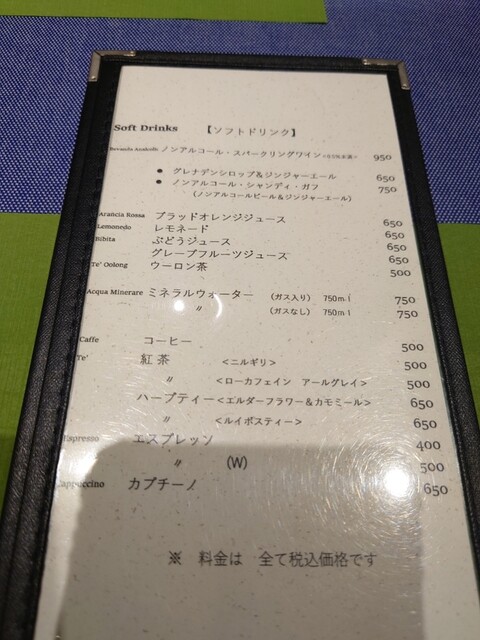 Soft Drinks 【ソフトドリンク】
Bevanda Analcolic ノンアルコール・スパークリングワイン 950
● グレナデンシロップ＆ジンジャーエール 650
● ノンアルコール・シャンディ・ガフ 750
(ノンアルコールビール＆ジンジャーエール)
Arancia Rossa ブラッドオレンジジュース 650
Lemonedo レモネード 650
Bibita ぶどうジュース 650
グレープフルーツジュース 650
Te' Oolong ウーロン茶 500
Acqua Minerare ミネラルウォーター (ガス入り) 750ml 750
〃 (ガスなし) 750ml 750
Caffe コーヒー 500
Te' 紅茶 <ニルギリ> 500
〃 <ローカフェイン アールグレイ> 500
ハーブティー <エルダーフラワー＆カモミール> 650
〃 <ルイボスティー> 650
Espresso エスプレッソ 400
〃 (W) 500
Cappuccino カプチーノ 650
※ 料金は 全て税込価格です